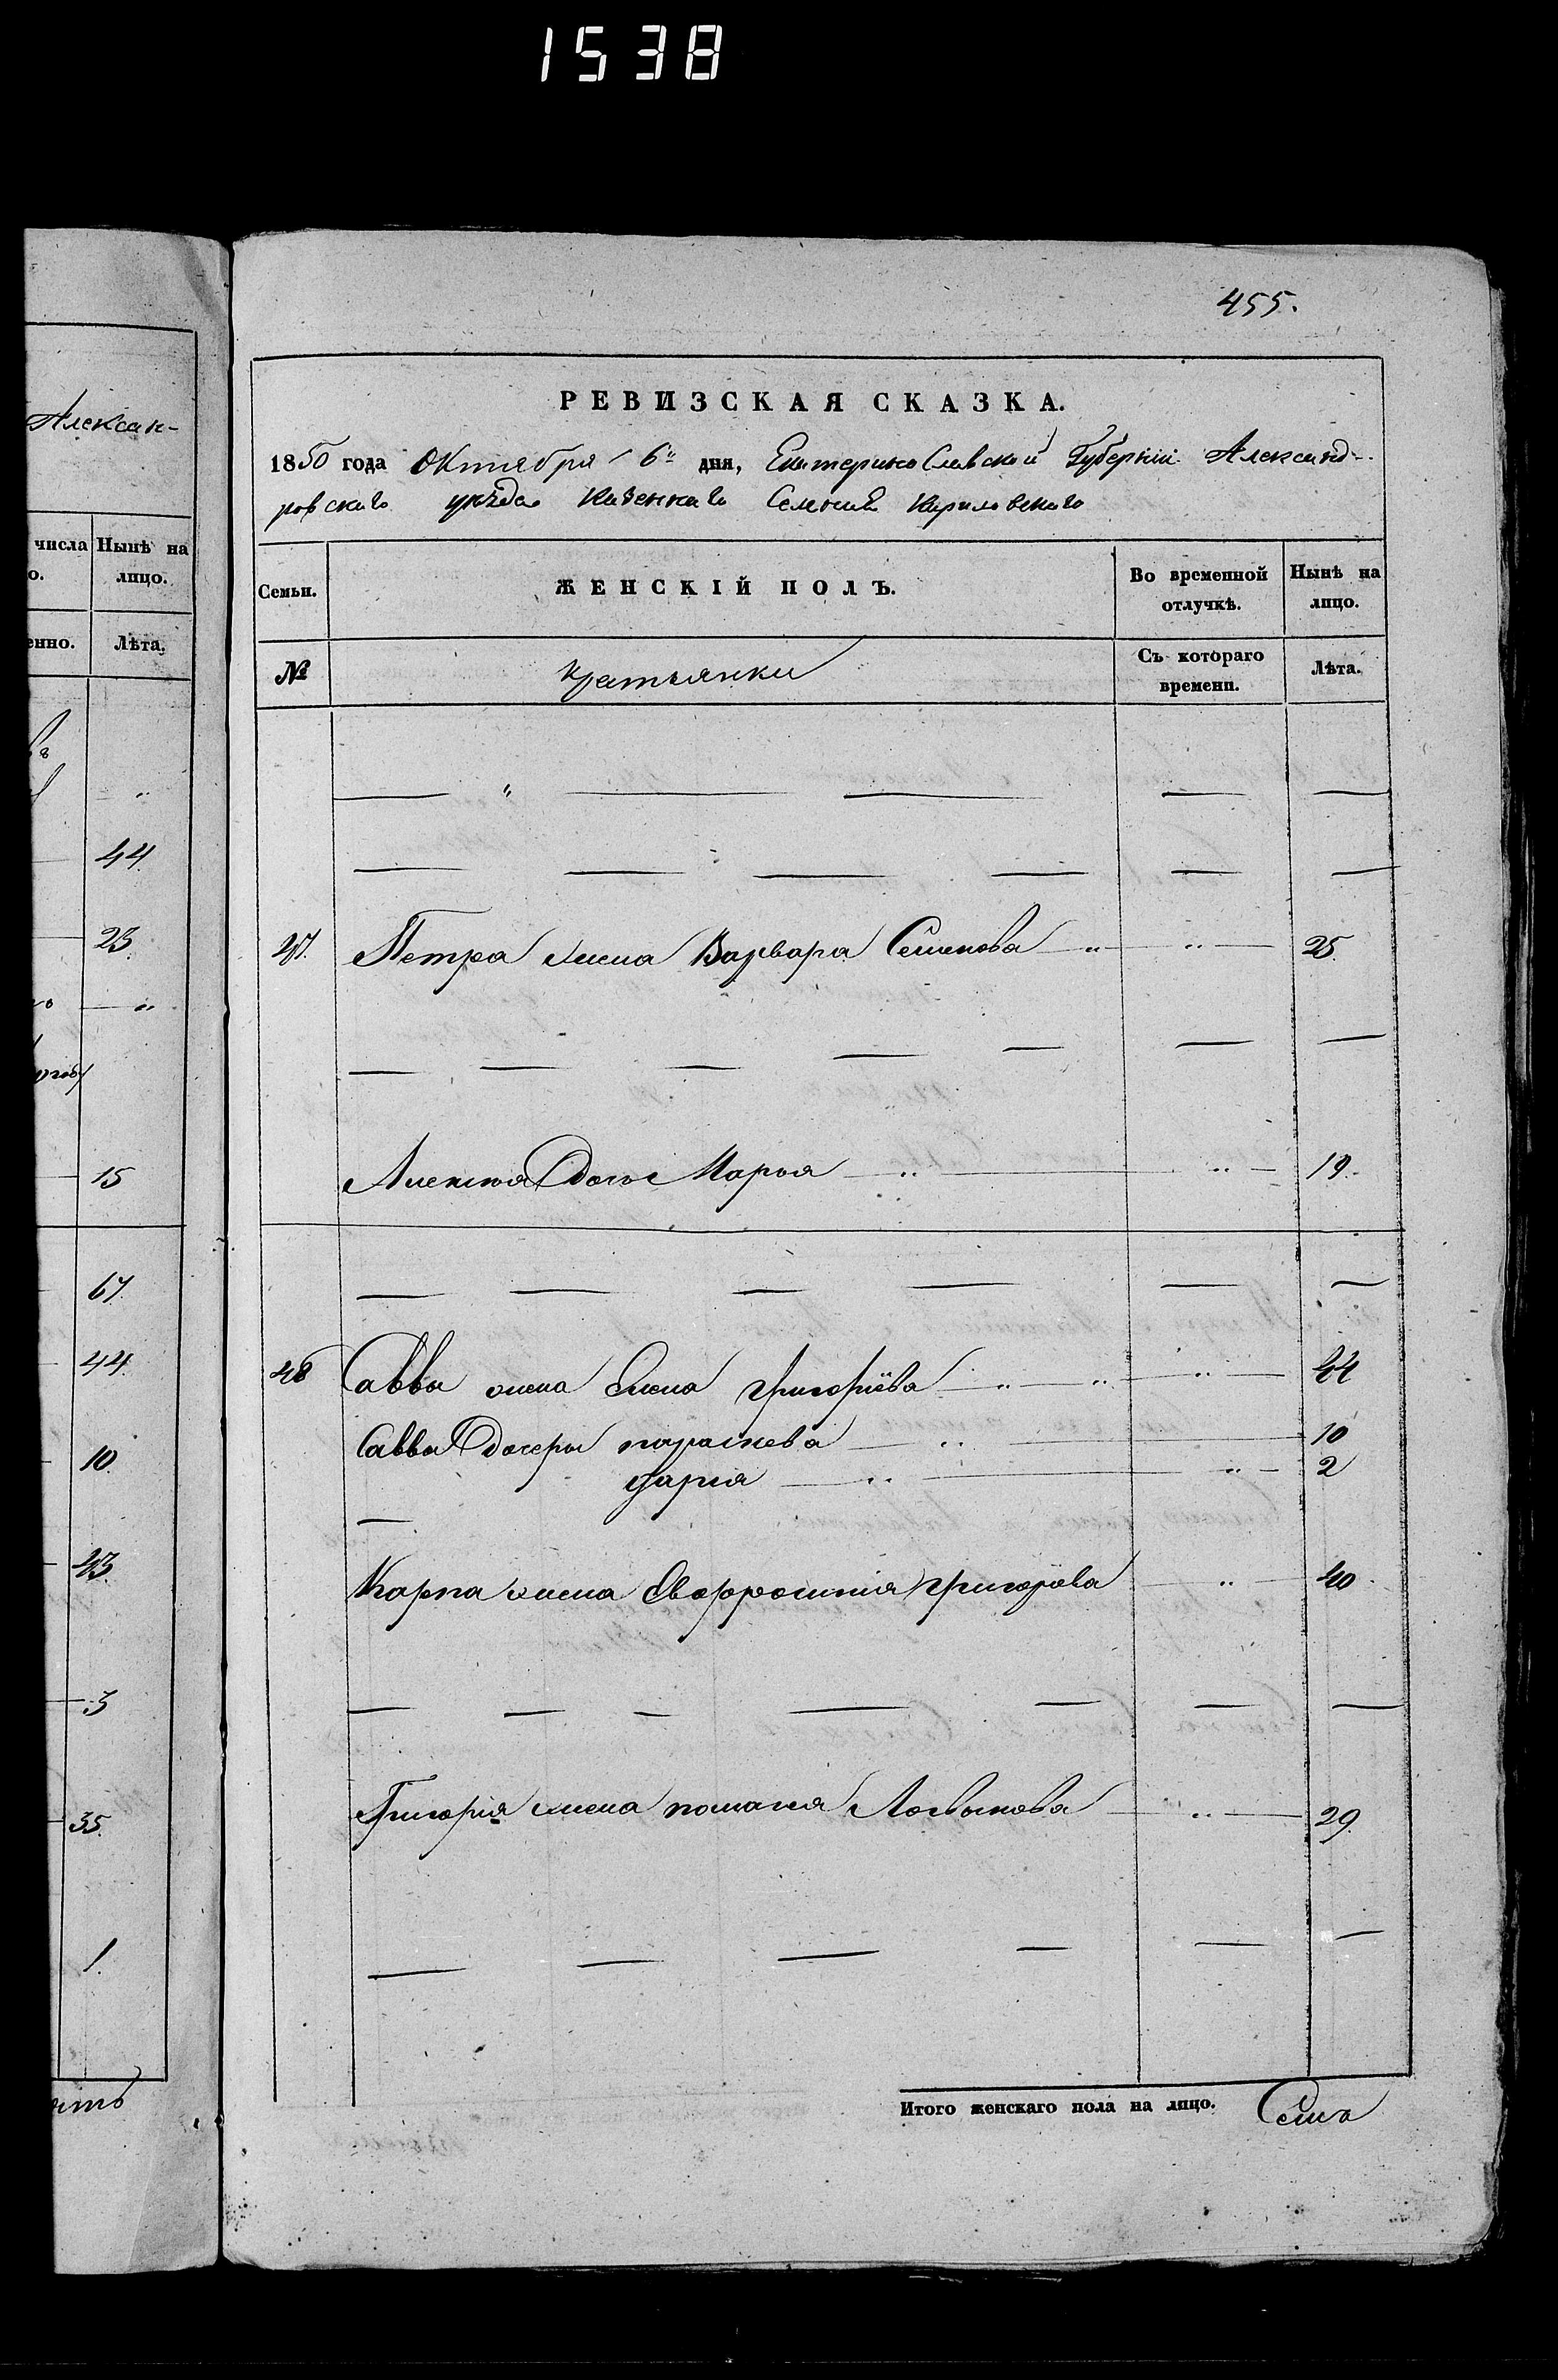 1538
455.
Алексан-
числа Нынѣ на
о. лицо.
енно. Лѣта.
44
23.
15
67.
44.
10.
43.
3
35.
1.
РЕВИЗСКАЯ СКАЗКА.
1850 года Октября 6" дня, Екатеринославской Губерніи Александ-
ровскаго уѣзда Казеннаго Селенія Кириловскаго
Семьи. ЖЕНСКІЙ ПОЛЪ. Во временной отлучкѣ. Нынѣ на лицо.
№ крестьянки Съ котораго времени. Лѣта.
47. Петра жена Варвара Семенова 25.
Алексѣя дочь Марья 19.
48 Саввы жена Елена Григоріева 44
Саввы дочери параскева 10
дарія 2
Карпа жена Евфросинія Григоріева 40
Григорія жена Логвинова 29.
Итого женскаго пола на лицо. Семь